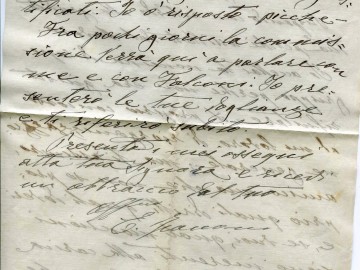 tificati. Io ò risposto - picche -
Fra pochi giorni la commis-
sione verrà qui a parlare con
me e con Falconi. Io pre-
senterò le tue doglianze
e ti riferirò subito.
Presenta i miei ossequi
alla tua Signora e ricevi
un abbraccio dal tuo
aff
E.